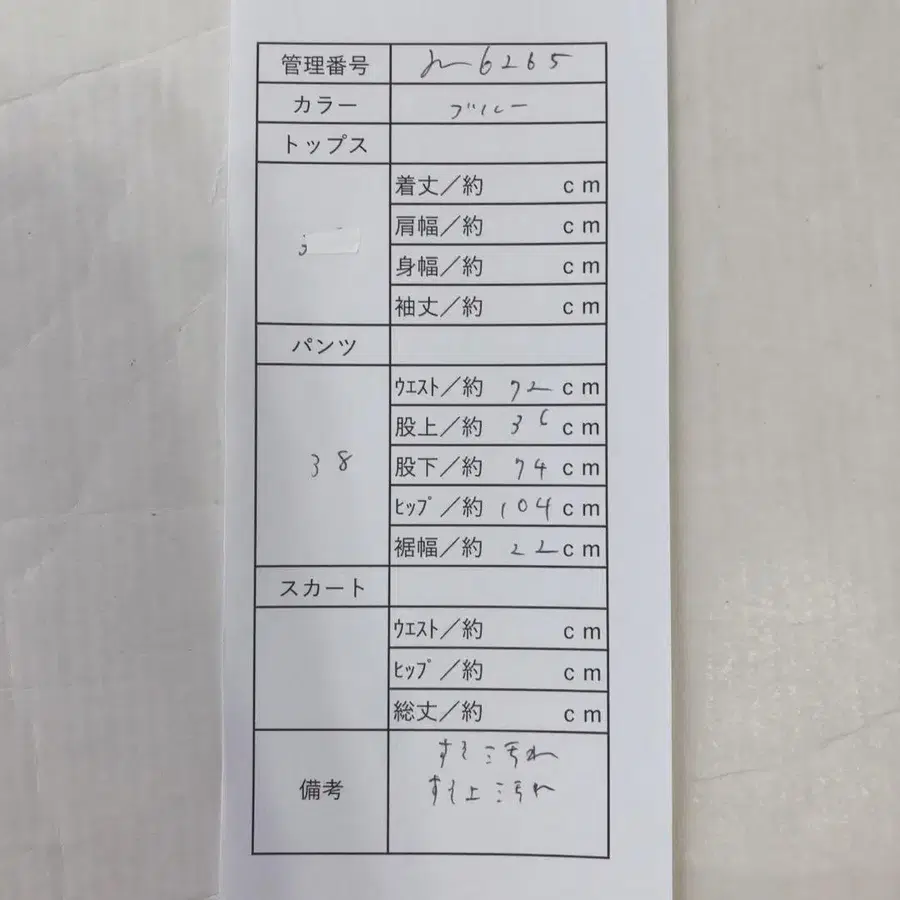 管理番号 m6265
カラー ブルー
トップス
着丈／約 cm
肩幅／約 cm
身幅／約 cm
袖丈／約 cm
パンツ
ｳｴｽﾄ／約 72 cm
股上／約 36 cm
38 股下／約 74 cm
ﾋｯﾌﾟ／約 104 cm
裾幅／約 22 cm
スカート
ｳｴｽﾄ／約 cm
ﾋｯﾌﾟ／約 cm
総丈／約 cm
備考
すそ 汚れ
すそ上 汚れ